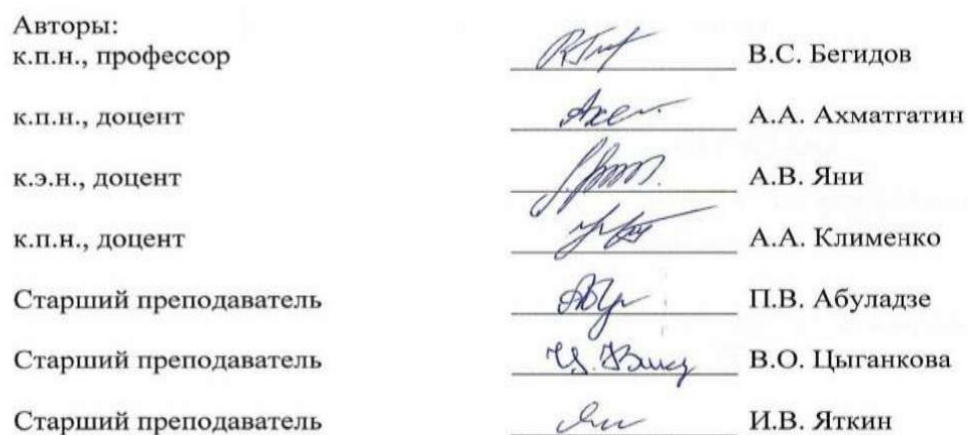 Авторы:
к.п.н., профессор В.С. Бегидов
к.п.н., доцент А.А. Ахматгатин
к.э.н., доцент А.В. Яни
к.п.н., доцент А.А. Клименко
Старший преподаватель П.В. Абуладзе
Старший преподаватель В.О. Цыганкова
Старший преподаватель И.В. Яткин